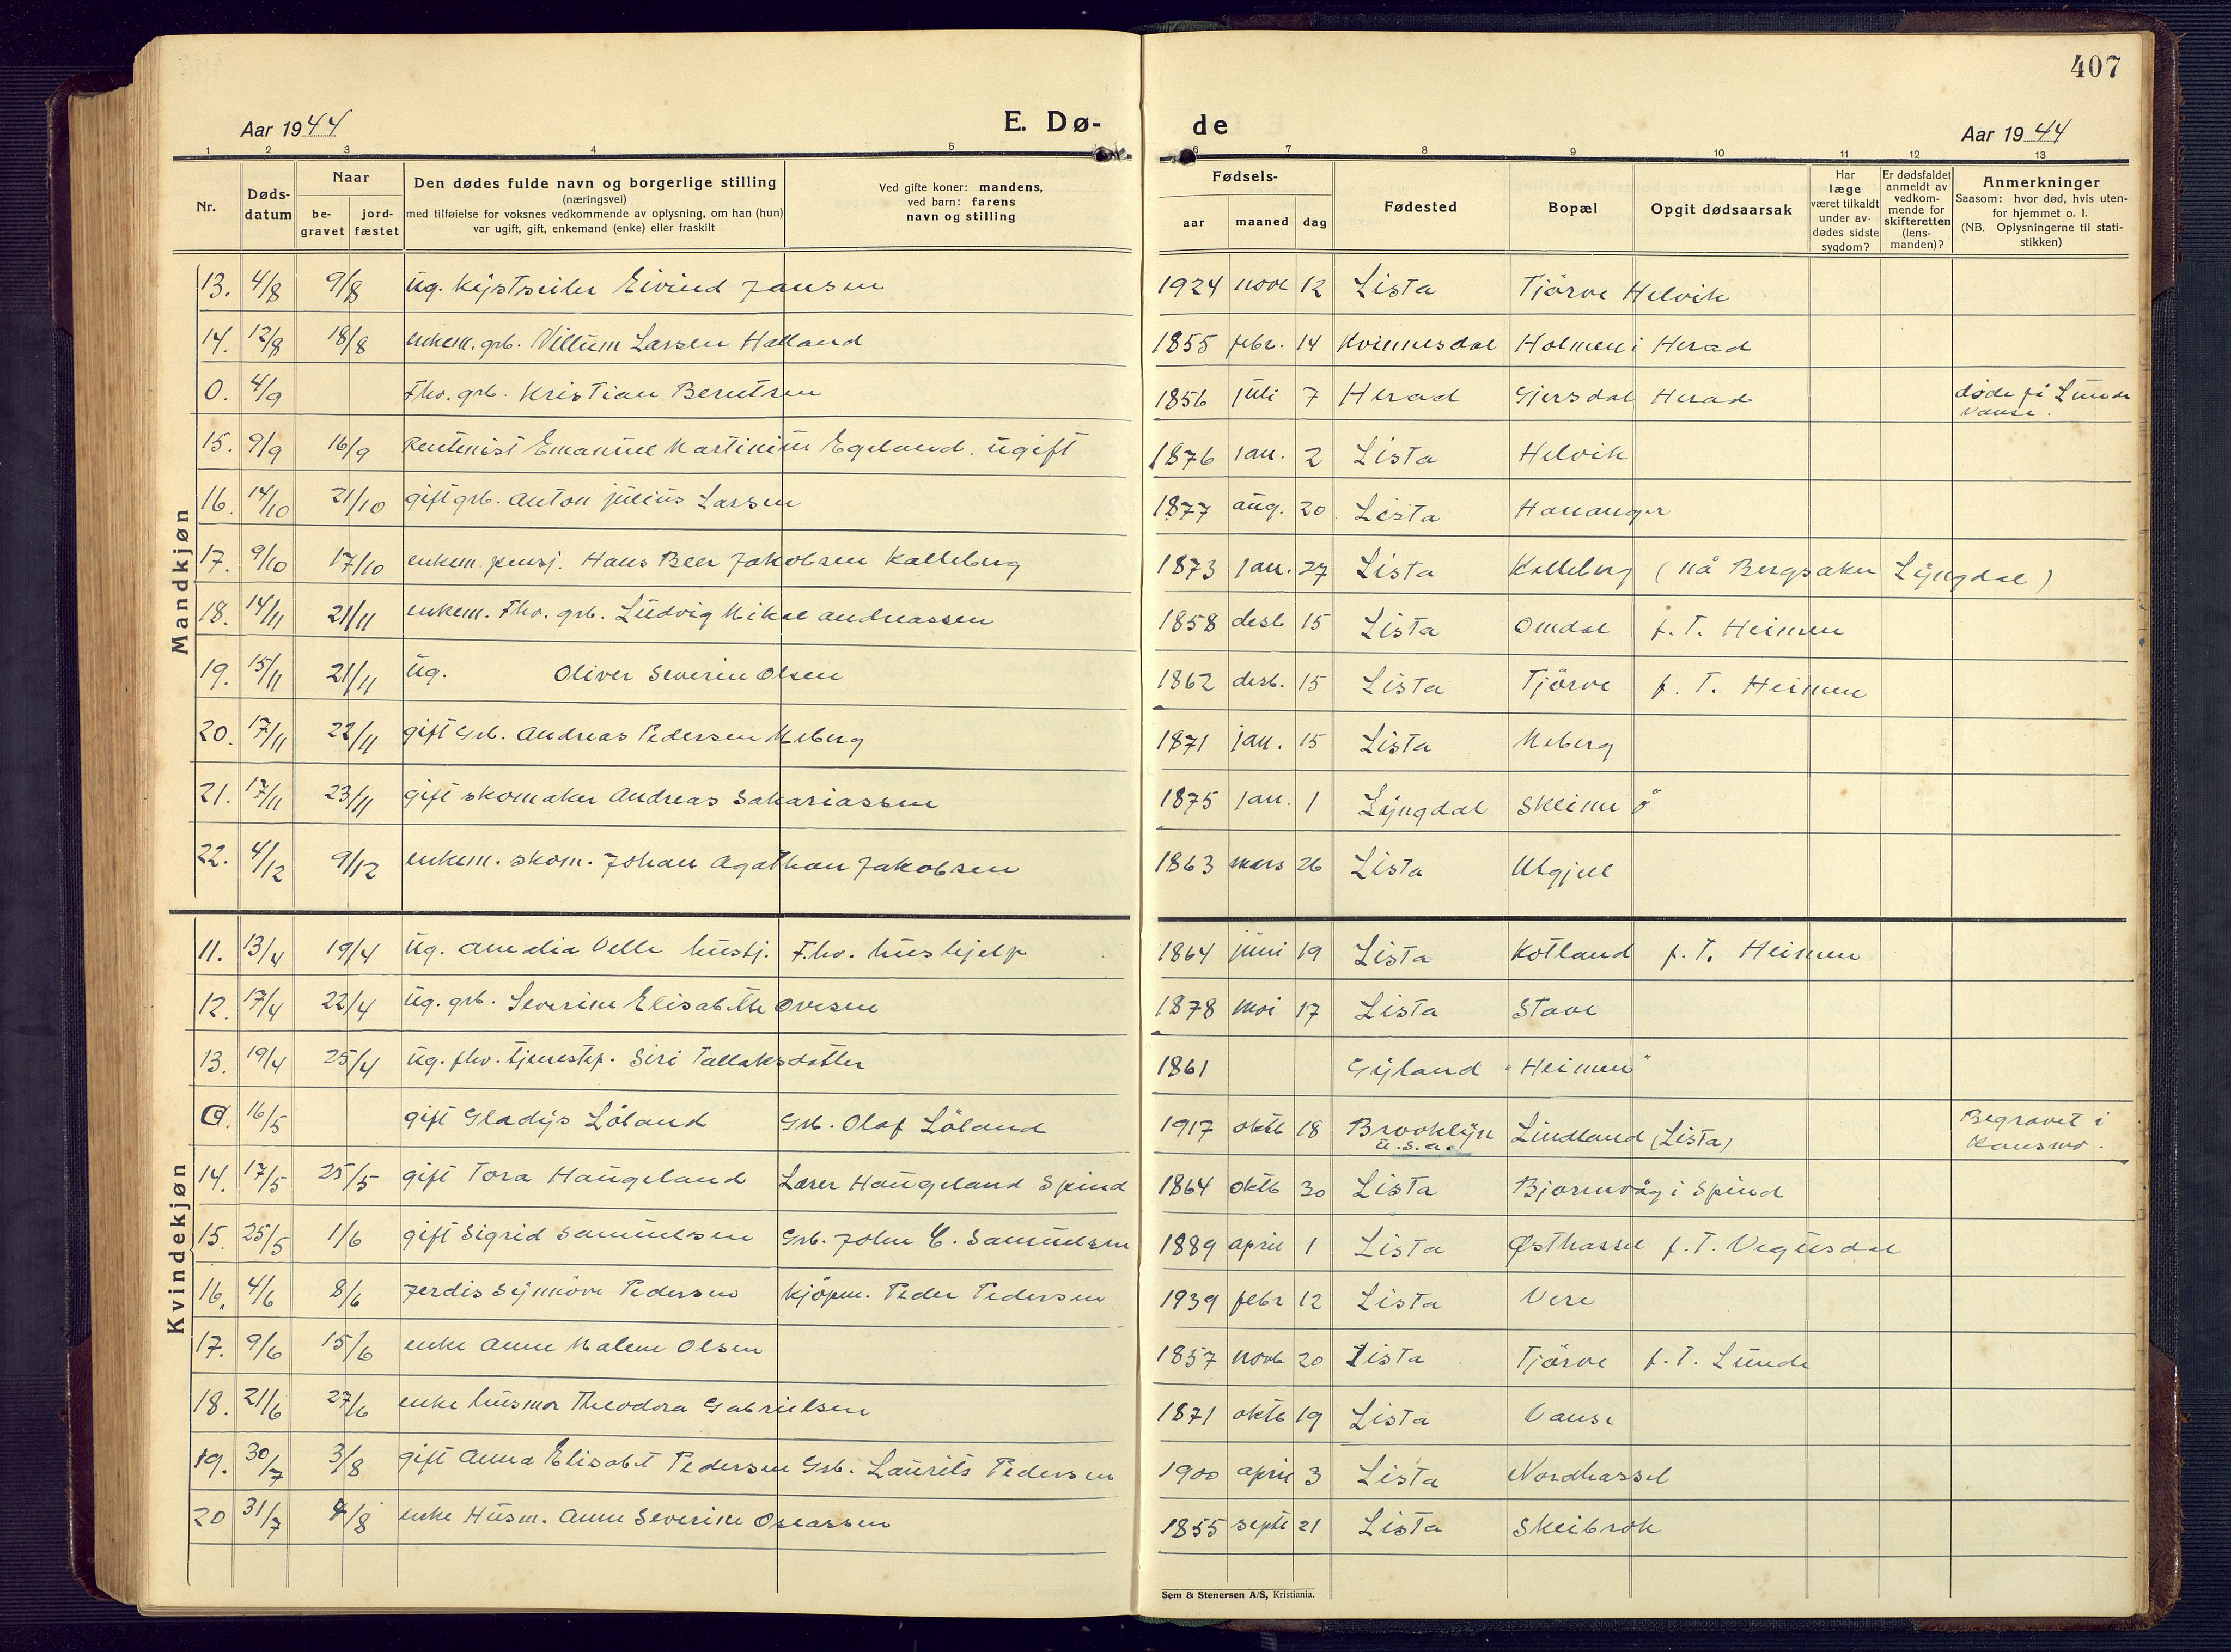 407
Aar 1944 E. Dø- de Aar 1944
1 2 3 4 5 6 7 8 9 10 11 12 13
Nr.
Døds-
datum
Naar
be-
gravet
jord-
fæstet
Den dødes fulde navn og borgerlige stilling
(næringsvei)
med tilføielse for voksnes vedkommende av oplysning, om han (hun)
var ugift, gift, enkemand (enke) eller fraskilt
Ved gifte koner: mandens,
ved barn: farens
navn og stilling
Fødsels-
aar maaned dag
Fødested
Bopæl
Opgit dødsaarsak
Har
læge
været tilkaldt
under av-
dødes sidste
sygdom?
Er dødsfaldet
anmeldt av
vedkom-
mende for
skifteretten
(lens-
manden)?
Anmerkninger
Saasom: hvor død, hvis uten-
for hjemmet o. l.
(NB. Oplysningerne til stati-
stikken)
Mandkjøn
13. 4/8 9/8 ug. kystseiler Eivind Jansen 1924 nov 12 Lista Tjörve Helvik
14. 12/8 18/8 enkem. grb. Villum Larsen Halland 1855 febr. 14 Kvinnesdal Holmen i Herad
0. 4/9 Fhv. grb. Kristian Berntsen 1856 juli 7 Herad Gjersdal Herad døde på Lunde Vanse.
15. 9/9 16/9 Rentenist Emanuel Martinius Egeland. ugift 1876 jan. 2 Lista Helvik
16. 14/10 21/10 gift grb. Anton Julius Larsen 1877 aug. 20 Lista Hananger
17. 9/10 17/10 enkem. pensj. Hans Beer Jakobsen Kalleberg 1873 jan. 27 Lista Kalleberg (nå Bergsaker Lyngdal)
18. 14/11 21/11 enkem. Fhv. grb. Ludvig Mikal Andreassen 1858 desb 15 Lista Omdal f. T. Heimen
19. 15/11 21/11 ug. Oliver Severin Olsen 1862 desb. 15 Lista Tjörve f. T. Heimen
20. 17/11 22/11 gift Grb. Andreas Pedersen Meberg 1871 jan. 15 Lista Meberg
21. 17/11 23/11 gift skomaker Andreas Sakariassen 1875 jan. 1 Lyngdal Skeime ö
22. 4/12 9/12 enkem. skom. Johan Agathon Jakobsen 1863 mars 26 Lista Utgjel
Kvindekjøn
11. 13/4 19/4 ug. Amalia Velle hustj. F.hv. hushjelp 1864 juni 19 Lista Kotland f. T. Heimen
12. 17/4 22/4 ug. grb. Severine Elisabeth Ovesen 1878 mai 17 Lista Stave
13. 19/4 25/4 ug. fhv. tjenestep. Siri Tallaksdatter 1861 Gyland "Heimen"
0. 16/5 gift Gladys Löland Grb. Olaf Löland 1917 oktb 18 Brooklyn u.s.a. Lindland (Lista) Begravet i Vansmo.
14. 17/5 25/5 gift Tora Haugeland Lærer Haugeland Spind 1864 oktb 30 Lista Bjørnevåg i Spind
15. 25/5 1/6 gift Sigrid Samuelsen Grb. John C. Samuelsen 1889 april 1 Lista Østhassel f. T. Vegusdal
16. 4/6 8/6 Jerdis Synnöve Pedersen kjöpm. Peder Pedersen 1939 febr 12 Lista Vere
17. 9/6 15/6 enke Anne Malene Olsen 1857 novb 20 Lista Tjörve f. T. Lunde
18. 21/6 27/6 enke husmor Theodora Gabrielsen 1871 oktb 19 Lista Vanse
19. 30/7 3/8 gift Anna Elisabet Pedersen Grb. Laurits Pedersen 1900 april 3 Lista Nordhassel
20 31/7 4/8 enke Husm. Anne Severine Oseassen 1855 septb 21 Lista Skeibrok
Sem & Stenersen A/S, Kristiania.